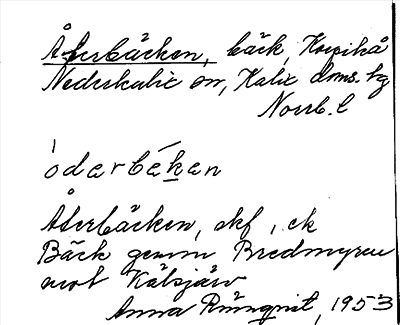 Återbäcken, bäck, Korpikå
Nederkalix sn, Kalix doms. hg
Norrb. l
ódarbékan
Återbäcken, ekf, ek
Bäck genom Bredmyren
mot Kälsjärv
Anna Rönnqvist, 1953